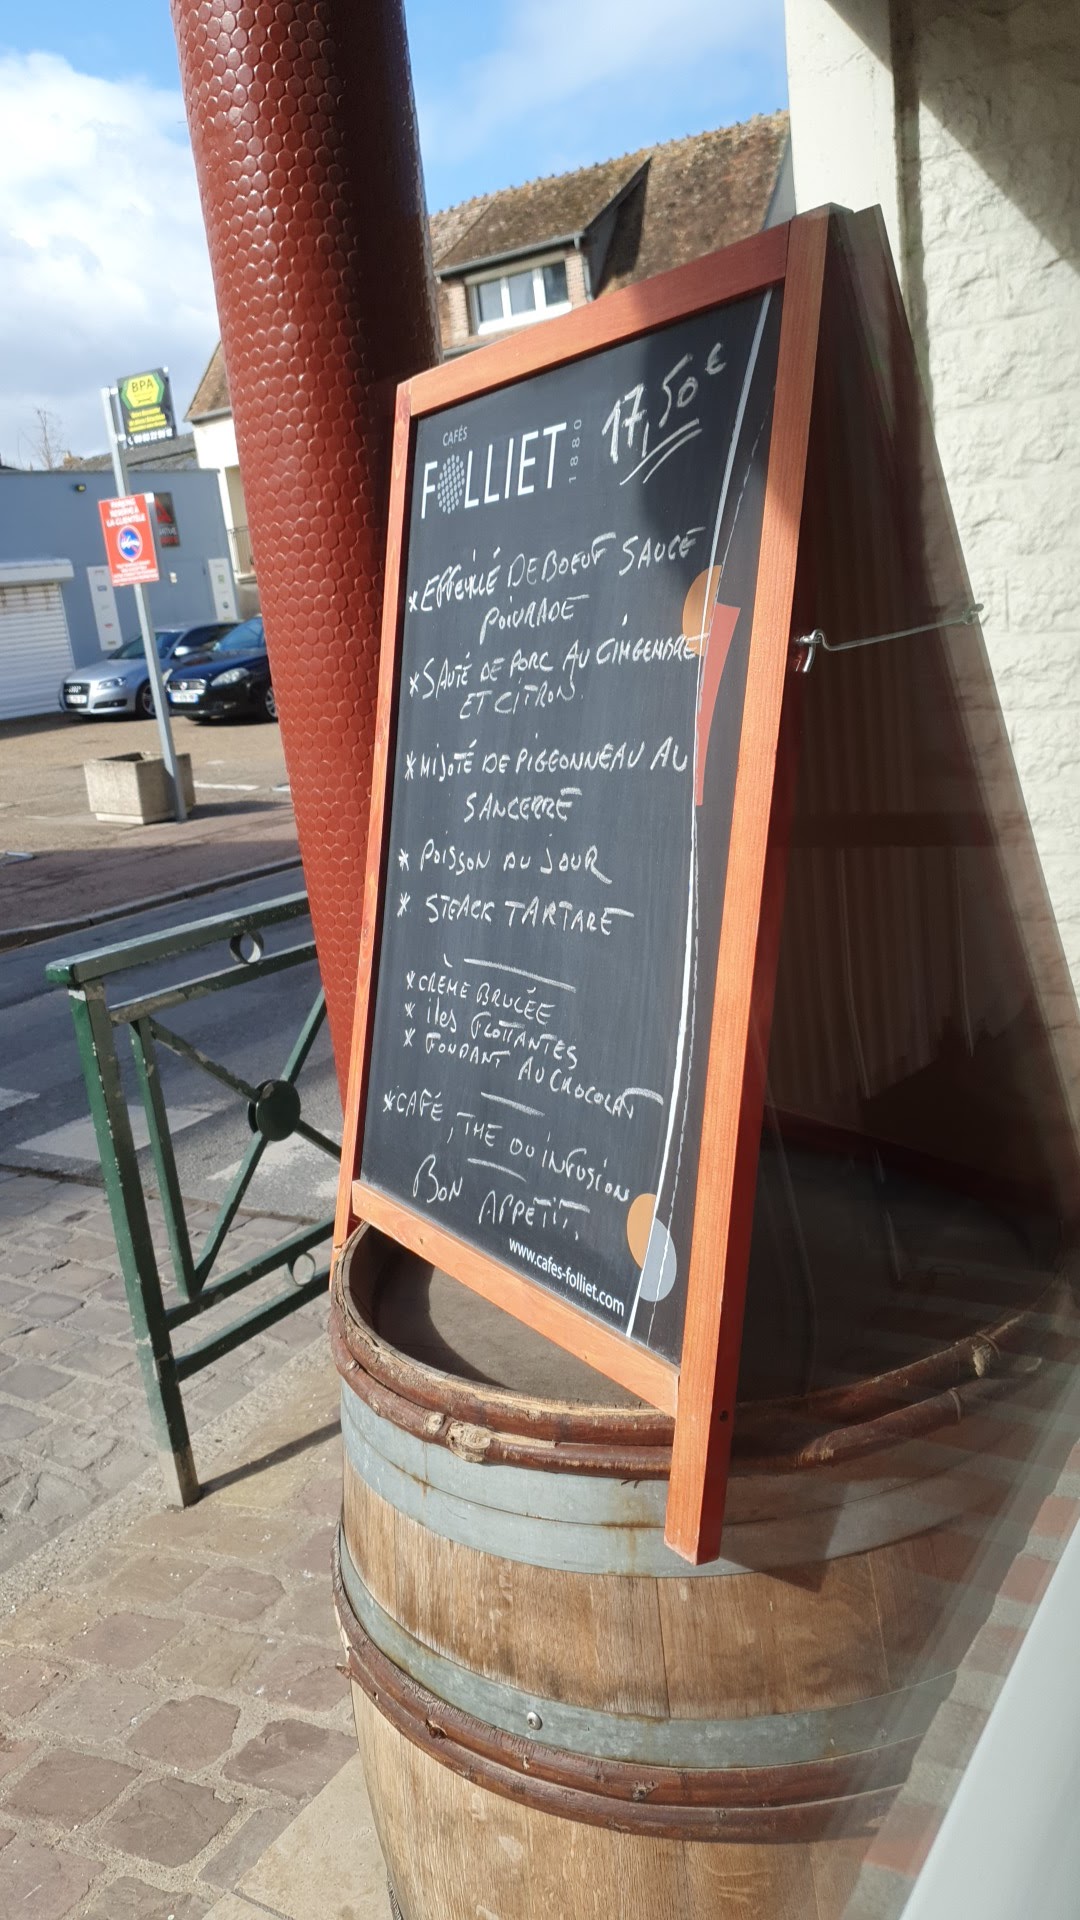 BPA
PARKING
RESERVÉ À
LA CLIENTÈLE
CAFÉS
FOLLIET
1880
17,50€
* EFFEUILLÉ DE BOEUF SAUCE
POIVRADE
* SAUTÉ DE PORC AU GINGEMBRE
ET CITRON.
* MIJOTÉ DE PIGEONNEAU AU
SANCERRE
* POISSON DU JOUR
* STEACK TARTARE
* CRÈME BRULÉE
* ILES FLOTTANTES
* FONDANT AU CHOCOLAT
* CAFÉ, THE OU INFUSION
BON APPETIT.
www.cafes-folliet.com